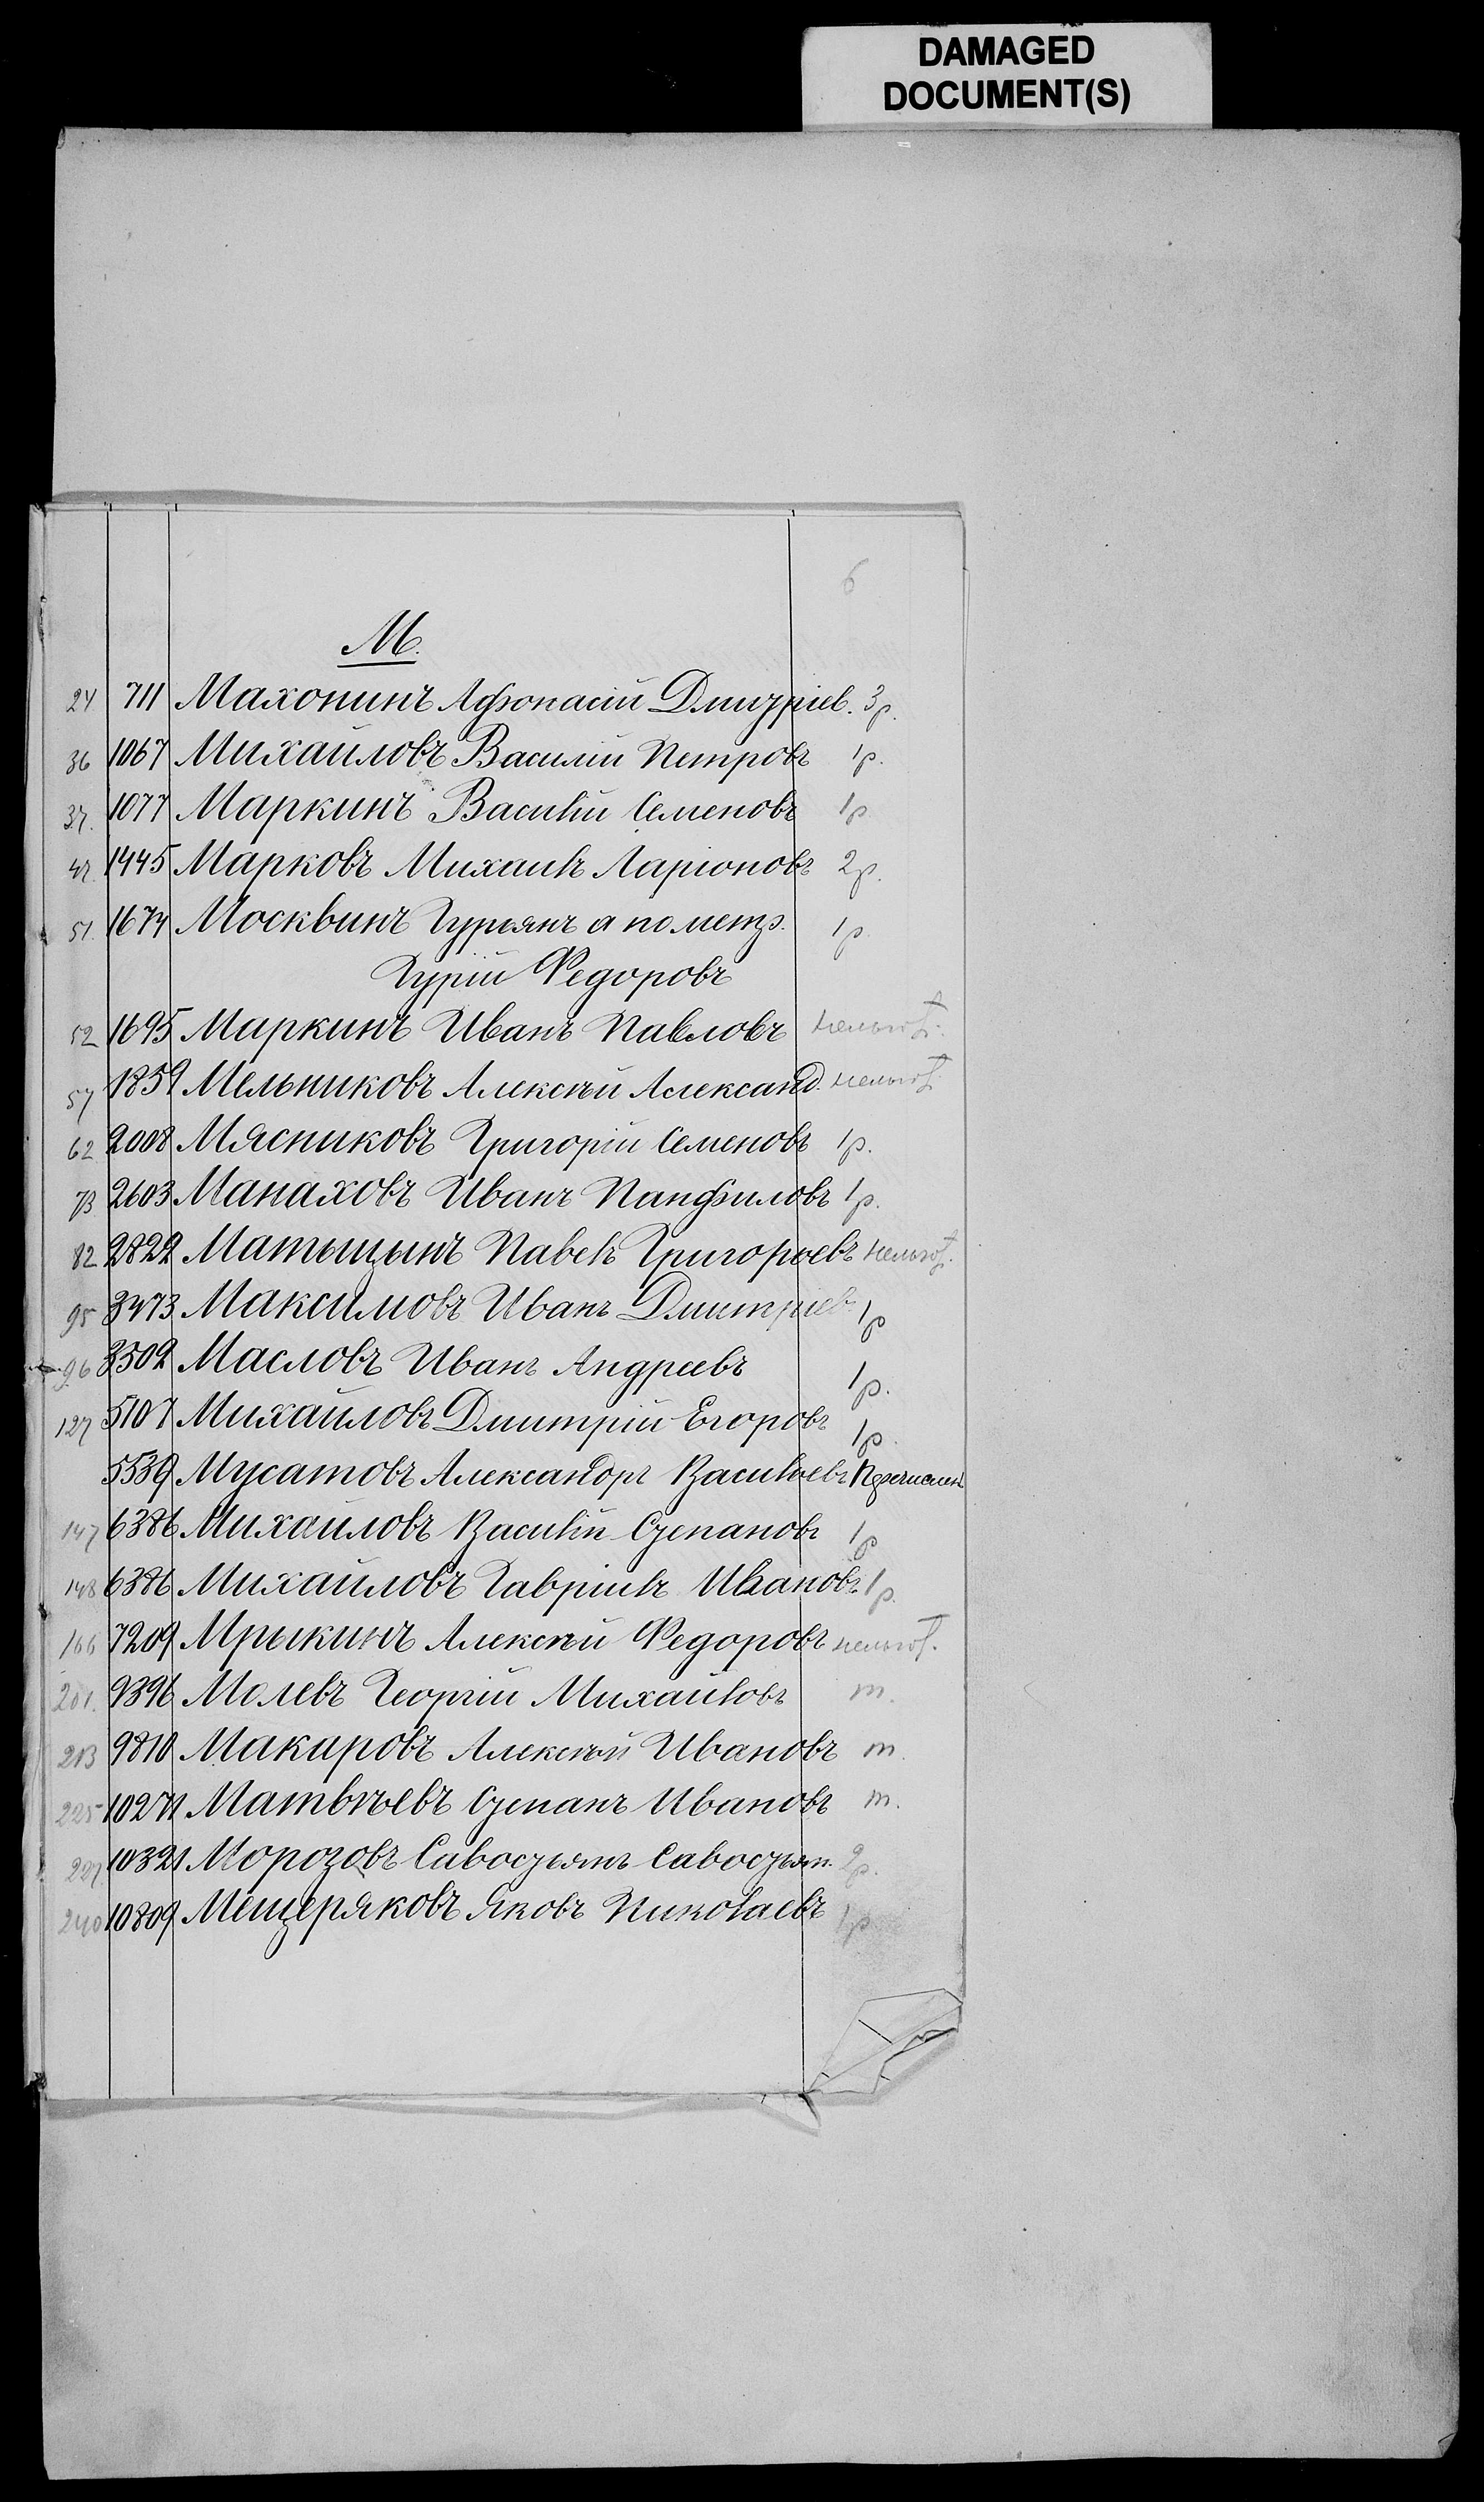 DAMAGED
DOCUMENT(S)
6
М.
24 711 Махонинъ Афонасій Дмитріев. 3р.
36 1067 Михайловъ Василій Петровъ 1р.
37. 1077 Маркинъ Василій Семеновъ 1р.
1445 Марковъ Михаилъ Ларіоновъ 2р.
51. 1674 Москвинъ Гурьянъ а по метр. 1р.
Гурій Федоровъ
52 1695 Маркинъ Иванъ Павловъ нельгот.
57 1859 Мельниковъ Алексѣй Александ. нельгот.
62 2008 Мясниковъ Григорій Семеновъ 1р.
73 2603 Манаховъ Иванъ Панфиловъ 1р.
82 2822 Матыцынъ Павелъ Григорьевъ нельгот.
95 3473 Максимовъ Иванъ Дмитріев. 1р
96 3502 Масловъ Иванъ Андреевъ 1р.
127 5107 Михайловъ Дмитрій Егоровъ 1р.
5539 Мусатовъ Александръ Васильевъ Перечислен
147 6386 Михайловъ Василій Степановъ 1р
148 6386 Михайловъ Гавріилъ Ивановъ 1р.
166 7209 Мрыкинъ Алексѣй Федоровъ нельгот.
201. 9396 Молевъ Георгій Михайловъ т.
213 9810 Макаровъ Алексѣй Ивановъ т.
225 10271 Матвѣевъ Степанъ Ивановъ т.
227 10321 Морозовъ Савостьянъ Савостьян. 2р.
240 10809 Мещеряковъ Яковъ Николаевъ 1р